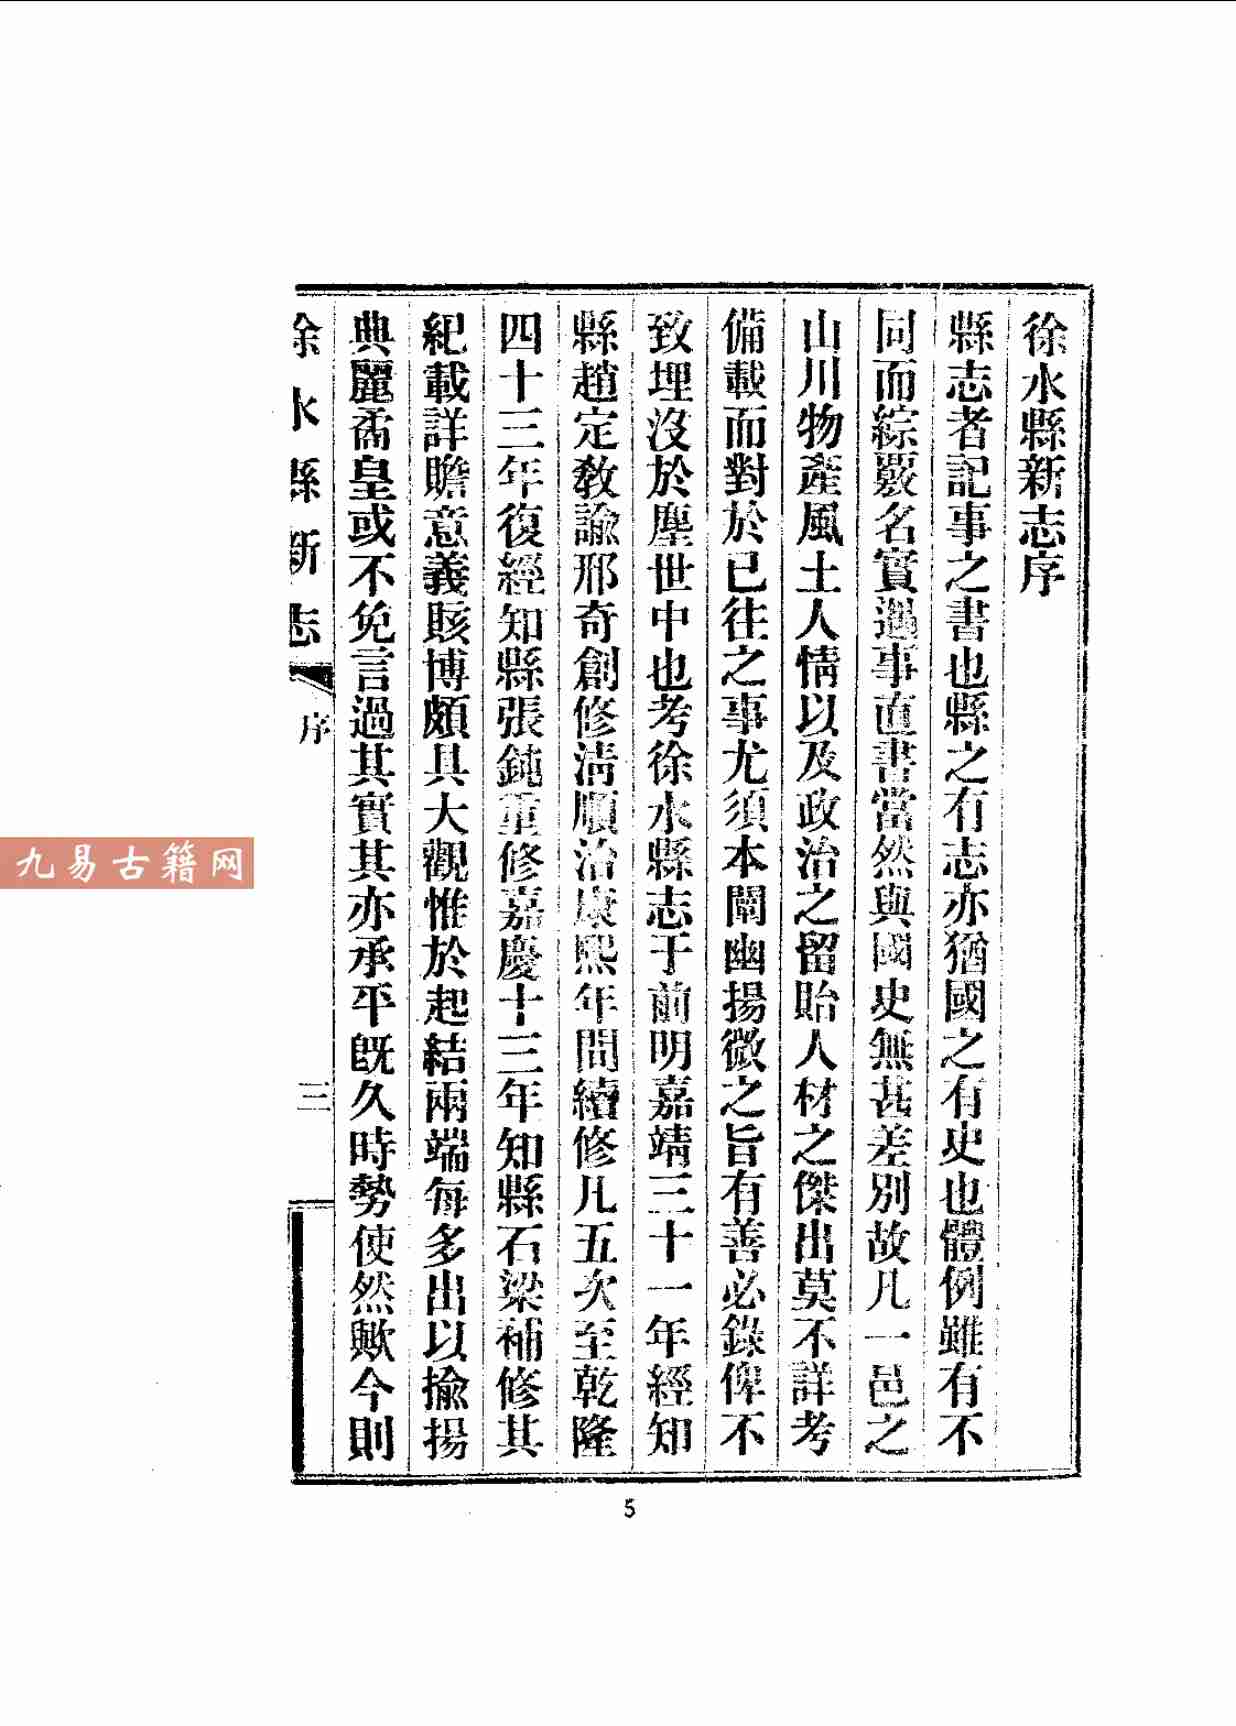 徐水縣新志序
縣志者記事之書也縣之有志亦猶國之有史也體例雖有不
同而綜覈名實遇事直書當然與國史無甚差別故凡一邑之
山川物產風土人情以及政治之留貽人材之傑出莫不詳考
備載而對於已往之事尤須本闡幽揚微之旨有善必錄俾不
致埋沒於塵世中也考徐水縣志于前明嘉靖三十一年經知
縣趙定教諭邢奇創修清順治康熙年間續修凡五次至乾隆
四十三年復經知縣張鈍重修嘉慶十三年知縣石梁補修其
紀載詳贍意義賅博頗具大觀惟於起結兩端每多出以揄揚
典麗矞皇或不免言過其實其亦承平既久時勢使然歟今則
徐水縣新志
序
三
5
九易古籍网